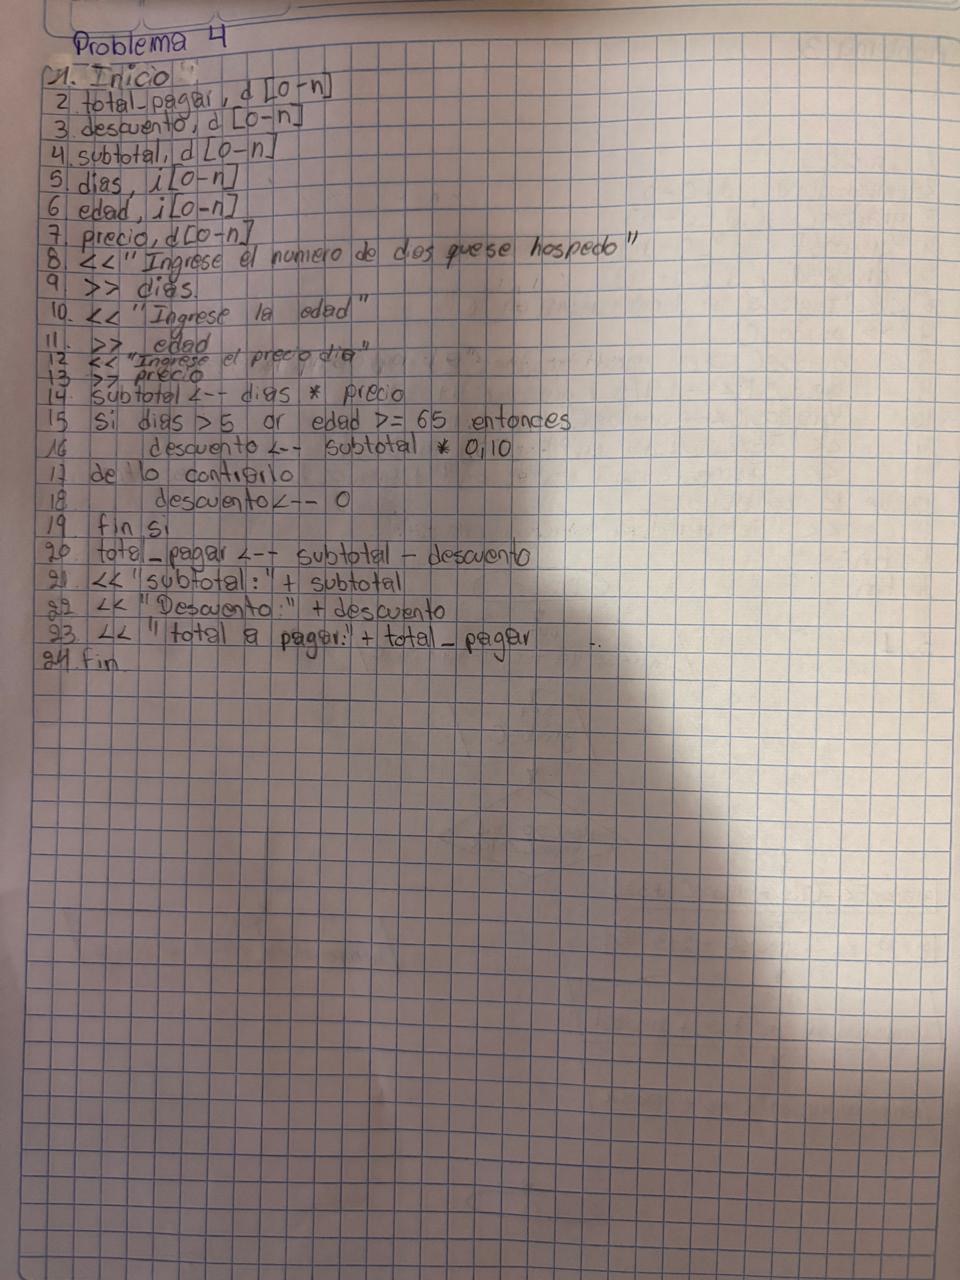 Problema 4
1. Inicio
2 total-pagar, d [0-n]
3. descuento, d [0-n]
4. subtotal, d [0-n]
5 dias, i [0-n]
6 edad, i [0-n]
7. precio, d [0-n]
8 << "Ingrese el numero de dias que se hospedo"
9 >> dias.
10. << "Ingrese la edad"
11. >> edad
12 << "Ingrese el precio dia"
13 >> precio
14. subtotal <-- dias * precio
15 si dias > 5 or edad >= 65 entonces
16 descuento <-- subtotal * 0,10
17 de lo contrario
18 descuento <-- 0
19 fin si
20. total_pagar <-- subtotal - descuento
21 << "subtotal:" + subtotal
22 << "Descuento:" + descuento
23 << "total a pagar:" + total_pagar
24 fin